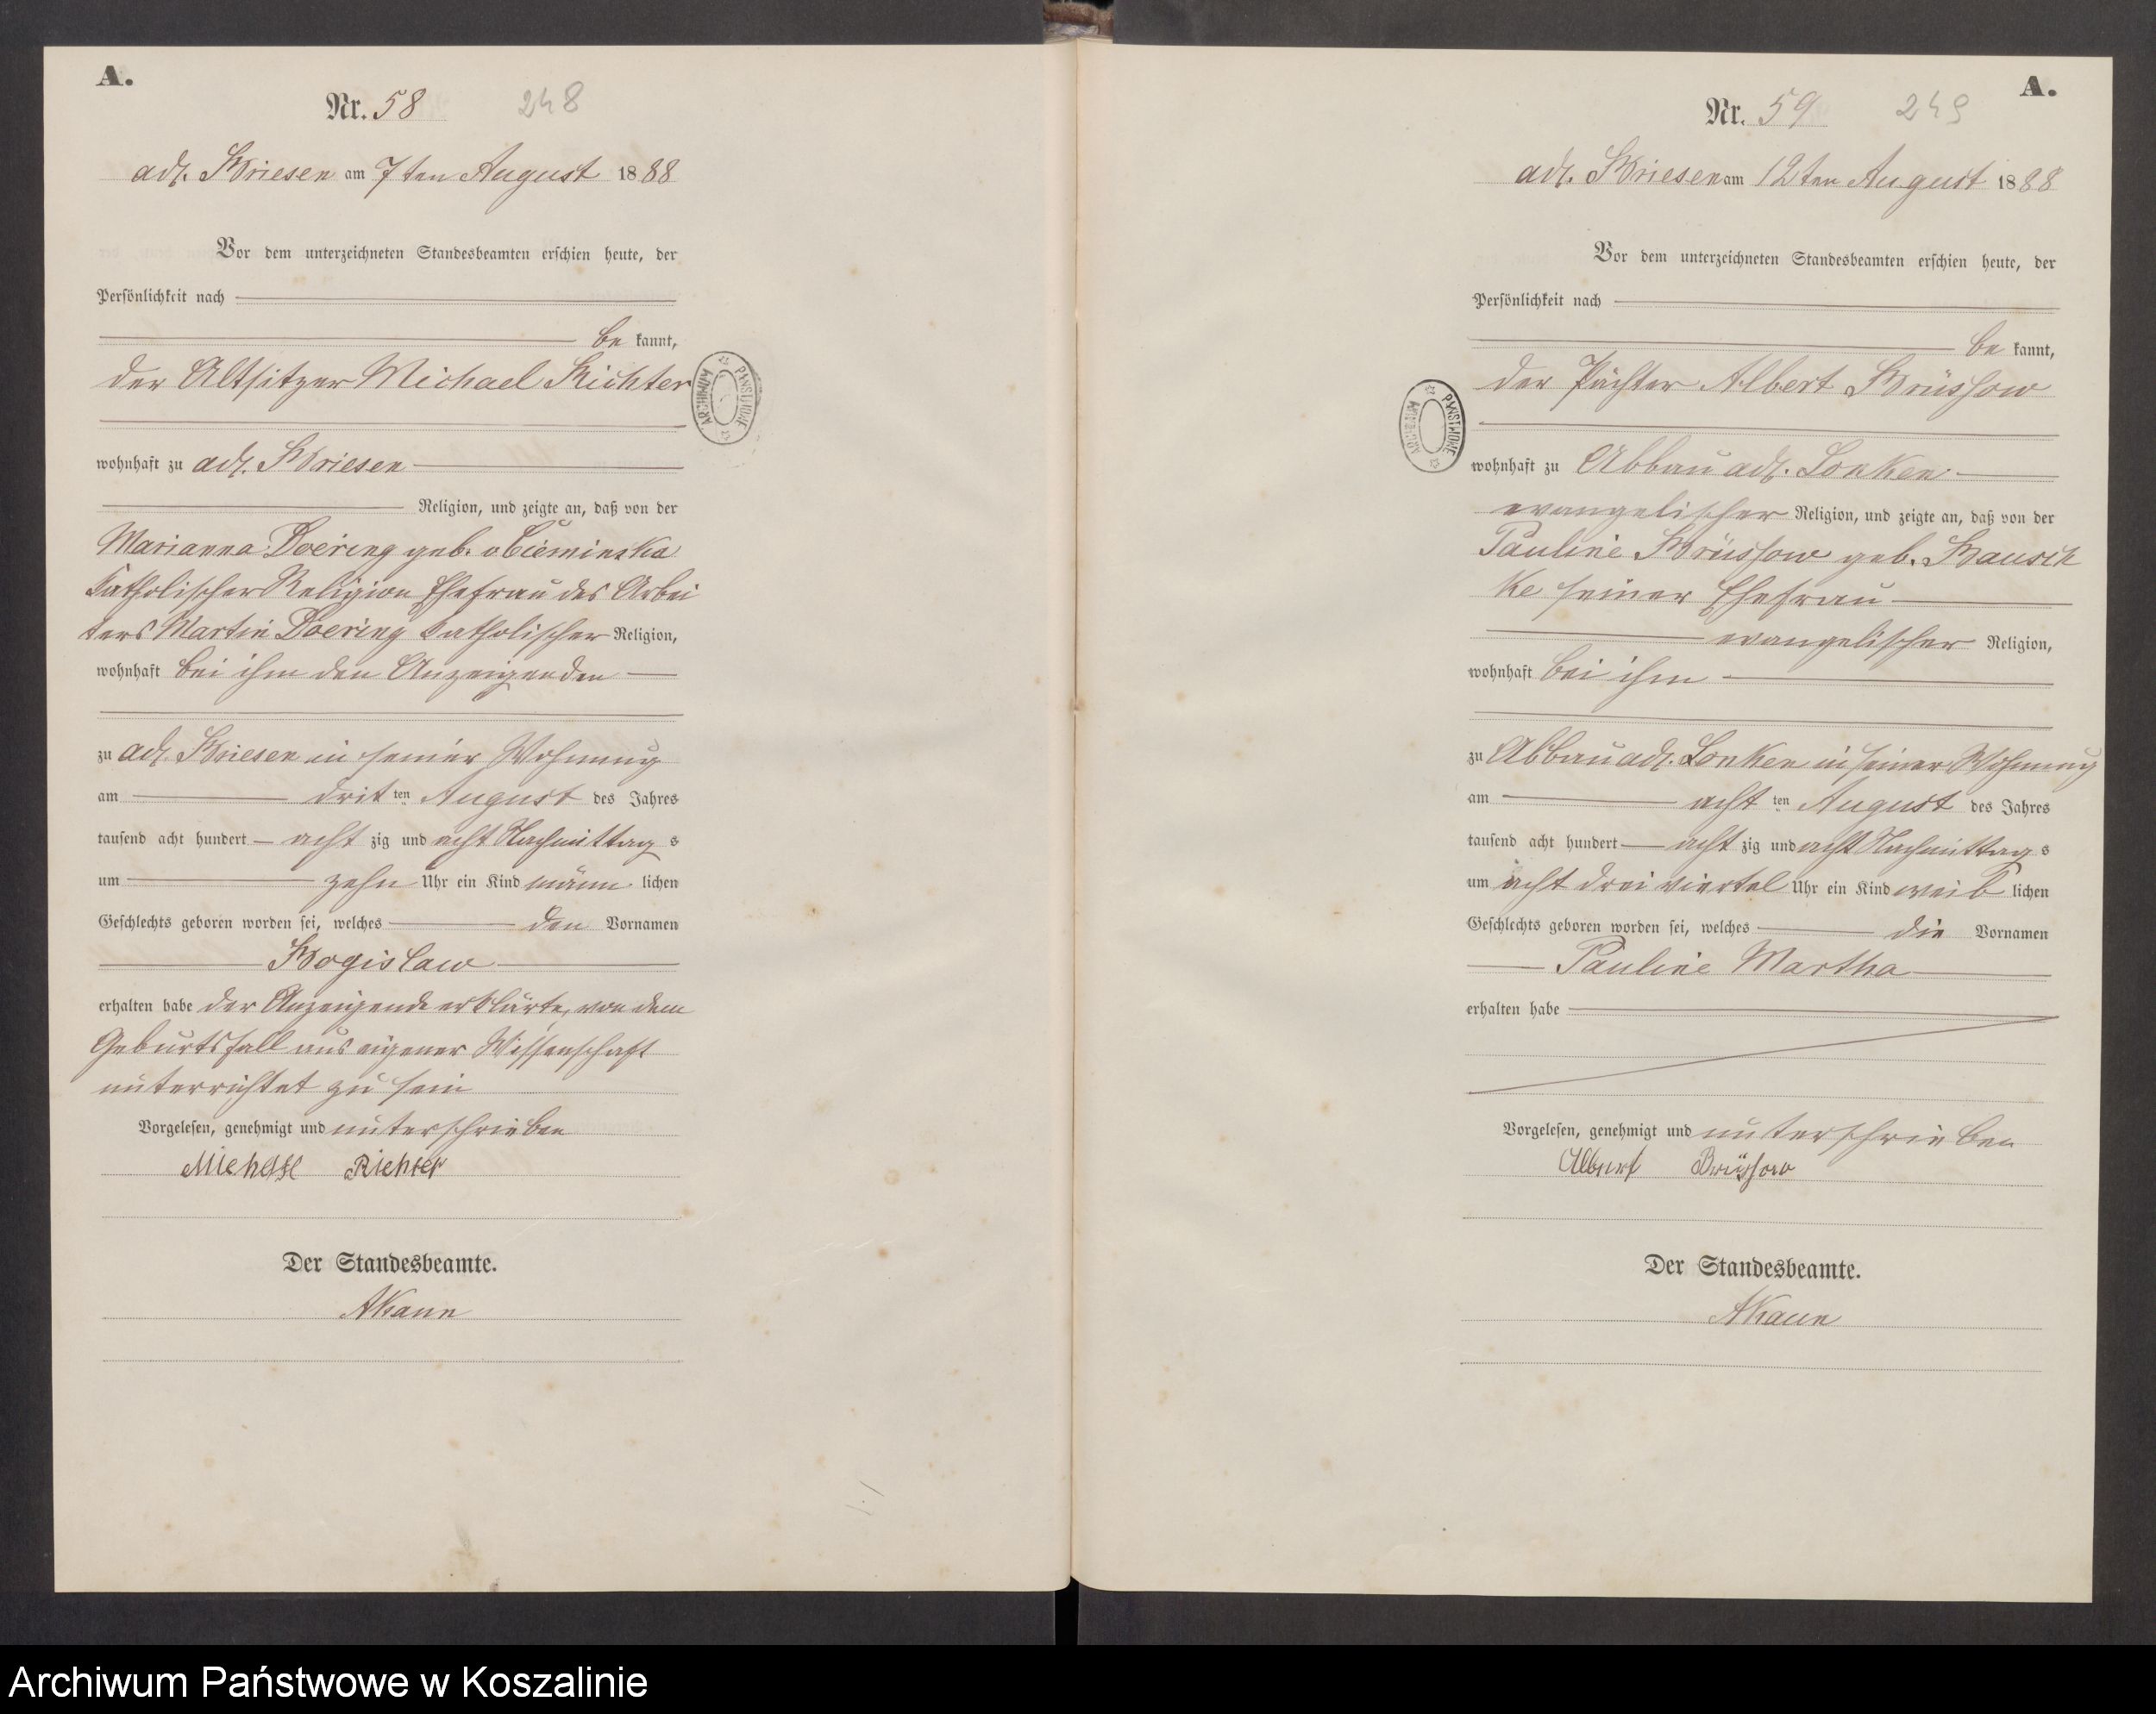 A.
Nr. 58 248
adl. Briesen am 7ten August 1888
Vor dem unterzeichneten Standesbeamten erschien heute, der
Persönlichkeit nach
be kannt,
der Altsitzer Michael Richter
wohnhaft zu adl. Briesen
Religion, und zeigte an, daß von der
Marianna Doering geb.
katholischer Religion Ehefrau des Arbei
ters Martin Doering katholischer Religion,
wohnhaft bei ihm den Anzeigenden
zu adl. Briesen in seiner Wohnung
am dritten August des Jahres
tausend acht hundert acht zig und acht Nachmittag s
um zehn Uhr ein Kind männ lichen
Geschlechts geboren worden sei, welches den Vornamen
Bogislaw
erhalten habe der Anzeigende erklärte, von dem
Geburtsfall aus eigener Wissenschaft
unterrichtet zu sein
Vorgelesen, genehmigt und unterschrieben
Richter
Der Standesbeamte.
ARCHIWUM PAŃSTWOWE
A.
Nr. 59 249
adl. Briesen am 12ten August 1888
Vor dem unterzeichneten Standesbeamten erschien heute, der
Persönlichkeit nach
be kannt,
der Pächter Albert Brüssow
wohnhaft zu Abbau adl. Lonken
evangelischer Religion, und zeigte an, daß von der
Pauline Brüssow geb. Bausch
ke seiner Ehefrau
evangelischer Religion,
wohnhaft bei ihm
zu Abbau adl. Lonken in seiner Wohnung
am acht ten August des Jahres
tausend acht hundert acht zig und acht Nachmittag s
um acht drei viertel Uhr ein Kind weib lichen
Geschlechts geboren worden sei, welches die Vornamen
Pauline Martha
erhalten habe
Vorgelesen, genehmigt und unterschrieben
Albert Brüssow
Der Standesbeamte.
ARCHIWUM PAŃSTWOWE
Archiwum Państwowe w Koszalinie